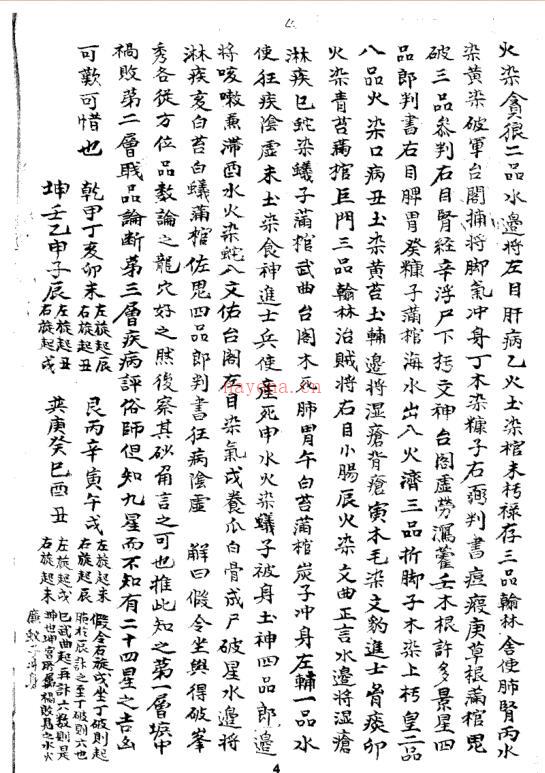 火染貪狼二品水邊將左目肝病乙火土染棺未朽祿存三品翰林舍使肺腎丙水
染黃染破軍台閣捕將脚氣冲身丁木染糠子右弼判書痘瘦庚草根滿棺鬼
破三品叅判右目腎経辛浮尸下朽文神台閣虛勞瀉藿壬木根許多景星四
品郎判書右目脾胃癸糠子滿棺海水出入火濟三品折脚子木染上朽皇二品
八品火染口病丑土染黃苔土輔邊將湿瘡背瘡寅木毛染文豹進士胃痰卯
火染青苔滿棺巨門三品翰林治賊將右目小腸辰火染文曲正言水邊將湿瘡
淋疾巳蛇染蟻子滿棺武曲台閣木死肺胃午白苔滿棺炭子冲身左輔一品水
使狂疾陰虛未土染食神進士兵使產死申水火染蟻子被身土神四品郎邊
將咳嗽熏滯酉水火染蛇八文佑台閣右目染氣戌養瓜白骨成尸破星水邊將
淋疾亥白苔白蟻滿棺佐鬼四品郎判書狂病陰虛 解曰假令坐與得破峯
秀各從方位品数論之龍穴好之然後察其砂角言之可也推此知之第一層塚中
禍敗第二層戰品論断第三層疾病評俗師但知九星而不知有二十四星之吉凶
可歎可惜也 乾甲丁亥卯未 左旋起辰 右旋起丑 艮丙辛寅午戌 左旋起未 右旋起辰 假令右旋戌坐丁破則起
坤壬乙申子辰 左旋起丑 右旋起戌 巽庚癸巳酉丑 左旋起戌 右旋起未
4
nayona.cn